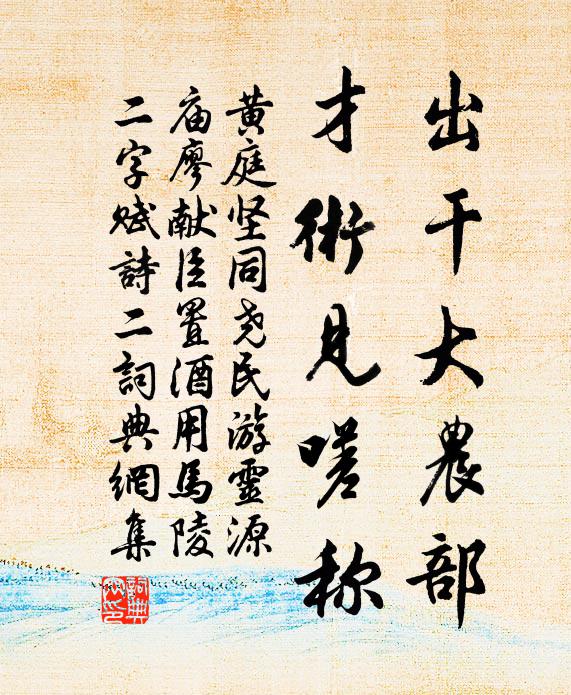 出干大農部
才術見嗟称
黄庭坚同尧民游靈源
庙廖献臣置酒用馬陵
二字赋詩二詞典網集